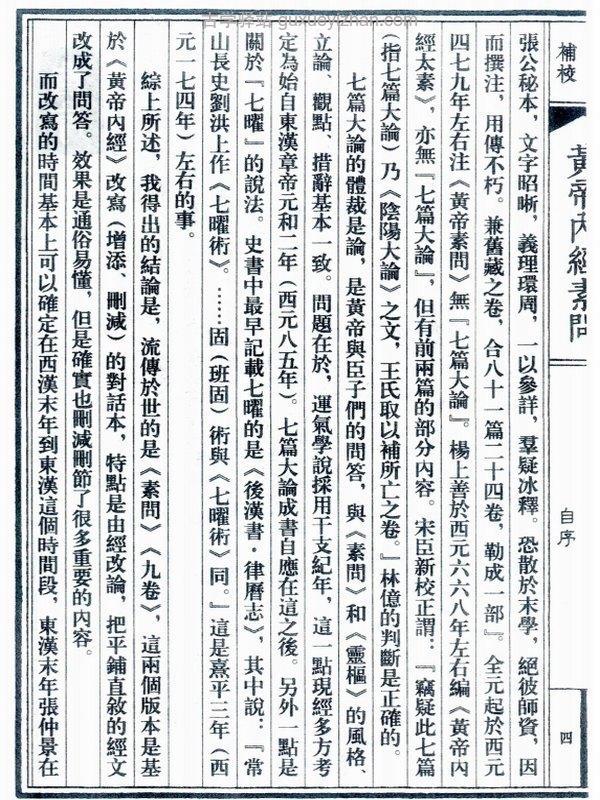 古学驿站 guxueyizhan.com
補校 黃帝內經素問
自序
四
張公秘本，文字昭晰，義理環周，一以參詳，羣疑冰釋。恐散於末學，絕彼師資，因
而撰注，用傳不朽。兼舊藏之卷，合八十一篇二十四卷，勒成一部』。全元起於西元
四七九年左右注《黃帝素問》無『七篇大論』。楊上善於西元六六八年左右編《黃帝內
經太素》，亦無『七篇大論』，但有前兩篇的部分內容。宋臣新校正謂：『竊疑此七篇
（指七篇大論）乃《陰陽大論》之文，王氏取以補所亡之卷。』林億的判斷是正確的。
七篇大論的體裁是論，是黃帝與臣子們的問答，與《素問》和《靈樞》的風格、
立論、觀點、措辭基本一致。問題在於，運氣學說採用干支紀年，這一點現經多方考
定為始自東漢章帝元和二年（西元八五年）。七篇大論成書自應在這之後。另外一點是
關於『七曜』的說法。史書中最早記載七曜的是《後漢書·律曆志》，其中說：『常
山長史劉洪上作《七曜術》。……固（班固）術與《七曜術》同。』這是熹平三年（西
元一七四年）左右的事。
綜上所述，我得出的結論是，流傳於世的是《素問》《九卷》，這兩個版本是基
於《黃帝內經》改寫（增添、刪減）的對話本，特點是由經改論，把平鋪直敘的經文
改成了問答。效果是通俗易懂，但是確實也刪減刪節了很多重要的內容。
而改寫的時間基本上可以確定在西漢末年到東漢這個時間段，東漢末年張仲景在